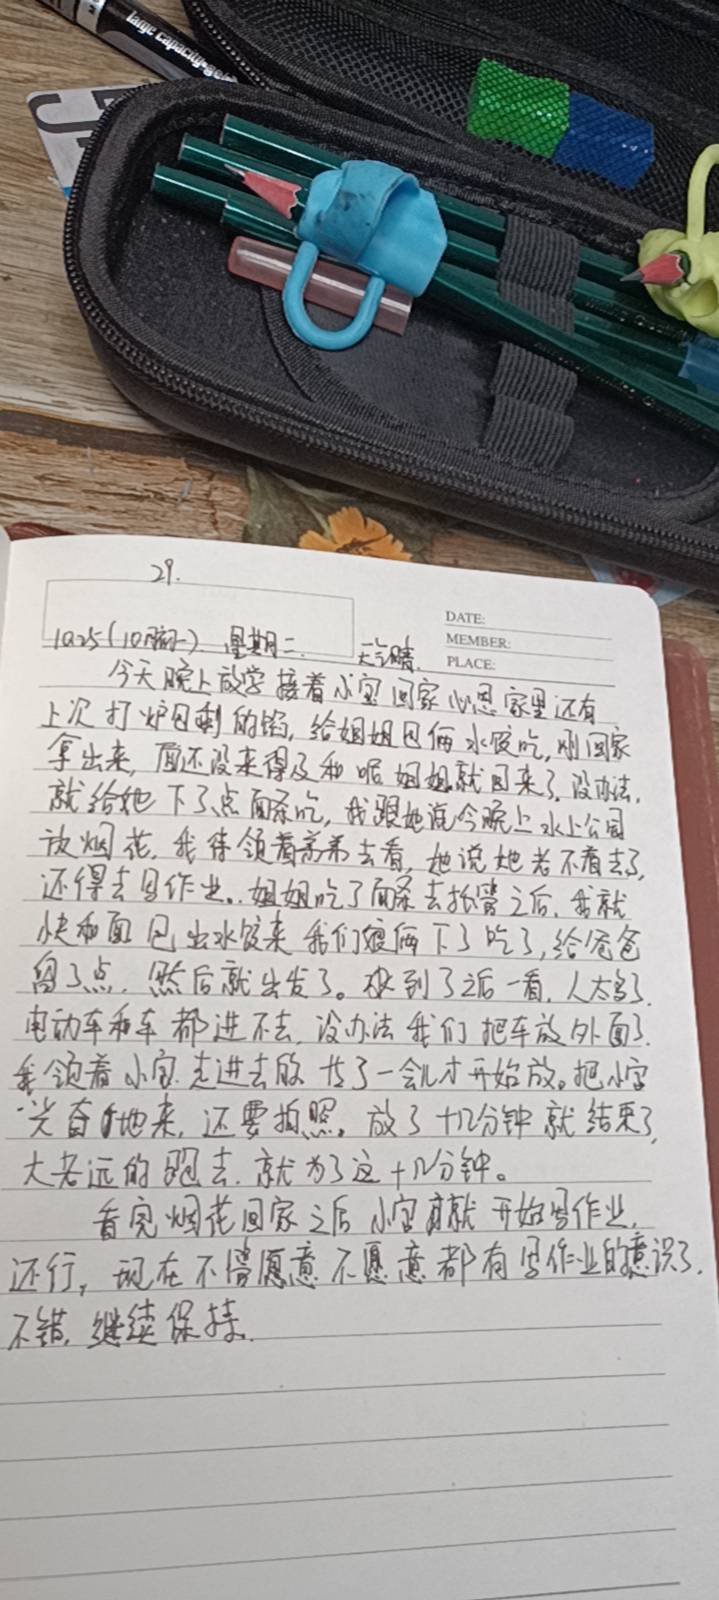 large capacity·gel
29.
DATE:
MEMBER:
PLACE:
10.25(10月初一) 星期二. 天气晴.
今天晚上放学接着小宝回家心思家里还有
上次打炉包剩的馅,给姐姐包俩水饺吃,刚回家
拿出来,面还没来得及和呢姐姐就回来了,没办法,
就给她下了点面条吃,我跟她说今晚上水上公园
放烟花,我待领着弟弟去看,她说她老不着去了,
还得去写作业。姐姐吃了面条去托管之后,我就
快和面包出水饺来我们娘俩下了吃了,给爸爸
留了点,然后就出发了。到了之后一看,人太多了,
电动车和车都进不去,没办法我们把车放外面了,
我领着小宝走进去的 待了一会儿才开始放。把小宝
兴奋地来,还要拍照。放了十几分钟就结束了,
大老远的跑去,就为了这十几分钟。
看完烟花回家之后小宝就开始写作业,
还行,现在不管愿意不愿意都有写作业的意识了,
不错,继续保持.